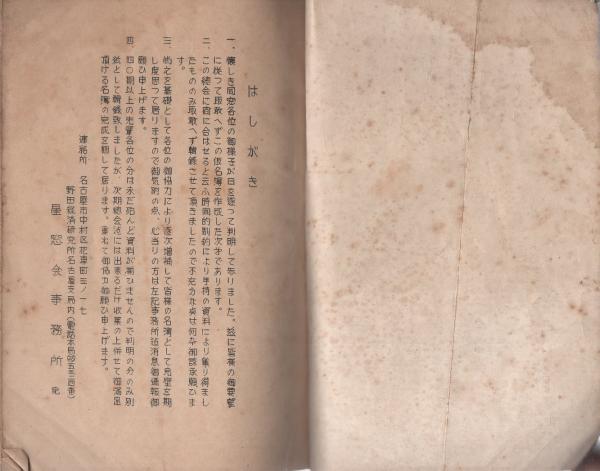 はしがき
一、懐しき同窓各位の御様子が日を逐つて判明して参りました。茲に皆様の御要望
に従つて取敢へずこの仮名簿を作成した次第であります。
二、この総会に間に合はせると云ふ時間的制約により手持の資料により蒐り得まし
たもののみ取敢へず輯儀させて頂きましたので不充分な点は何卒御諒承願ひま
す。
三、尚之を基礎として各位の御協力により逐次増補して皆様の名簿として完璧を期
し度思つて居りますので御気附の点、心当りの方は左記事務所迄消息御通報御
願ひ申上げます。
四、四〇期以上の先輩各位の分は未だ殆んど資料が揃ひませんので判明の分のみ別
紙として輯儀致しましたが、次期総会迄には出来るだけ収業の上併せて御満足
頂ける名簿の完成を期して居ります。重ねて御協力御願ひ申上げます。
連絡所 名古屋市中村区花車町三ノ一七
野田経済研究所名古屋支局内(電話本局
星窓会事務所